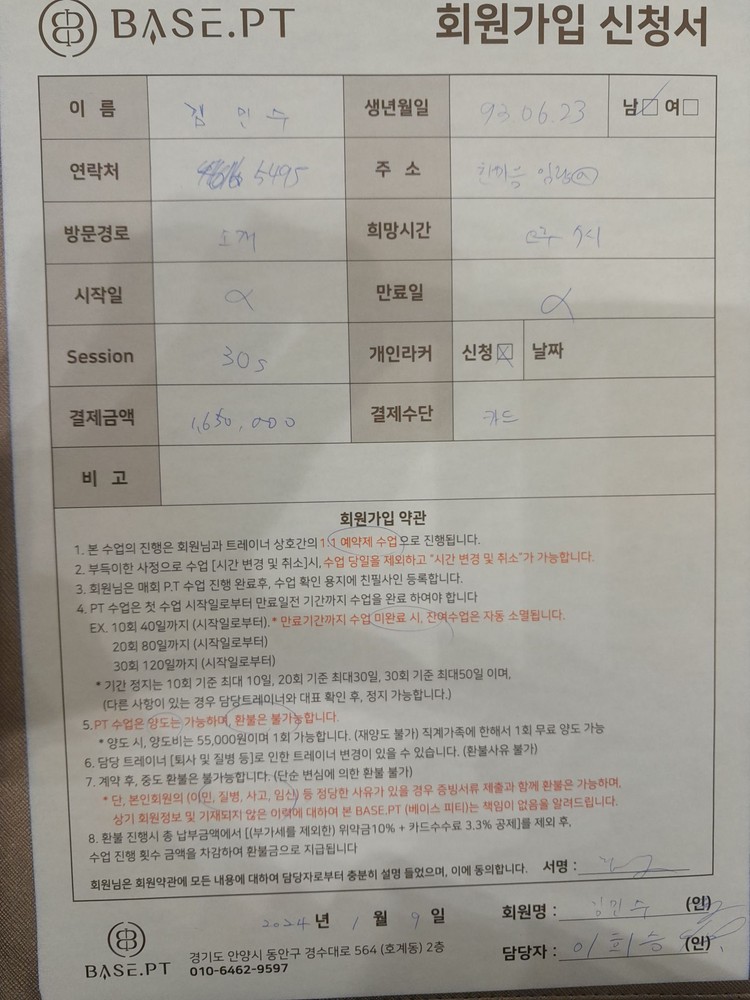 BASE.PT 회원가입 신청서
이 름 김 민 수 생년월일 93.06.23 남 여
연락처 5495 주 소
방문경로 소개 희망시간
시작일 만료일
Session 30s 개인라커 신청 날짜
결제금액 1,650,000 결제수단 카드
비 고
회원가입 약관
1. 본 수업의 진행은 회원님과 트레이너 상호간의 1:1 예약제 수업으로 진행됩니다.
2. 부득이한 사정으로 수업 [시간 변경 및 취소]시, 수업 당일을 제외하고 "시간 변경 및 취소"가 가능합니다.
3. 회원님은 매회 P.T 수업 진행 완료후, 수업 확인 용지에 친필사인 등록합니다.
4. PT 수업은 첫 수업 시작일로부터 만료일전 기간까지 수업을 완료 하여야 합니다
EX. 10회 40일까지 (시작일로부터). * 만료기간까지 수업 미완료 시, 잔여수업은 자동 소멸됩니다.
20회 80일까지 (시작일로부터)
30회 120일까지 (시작일로부터)
* 기간 정지는 10회 기준 최대 10일, 20회 기준 최대30일, 30회 기준 최대50일 이며,
(다른 사항이 있는 경우 담당트레이너와 대표 확인 후, 정지 가능합니다.)
5.PT 수업은 양도는 가능하며, 환불은 불가능합니다.
* 양도 시, 양도비는 55,000원이며 1회 가능합니다. (재양도 불가) 직계가족에 한해서 1회 무료 양도 가능
6. 담당 트레이너 [퇴사 및 질병 등]로 인한 트레이너 변경이 있을 수 있습니다. (환불사유 불가)
7. 계약 후, 중도 환불은 불가능합니다. (단순 변심에 의한 환불 불가)
* 단, 본인회원의 (이민, 질병, 사고, 임신) 등 정당한 사유가 있을 경우 증빙서류 제출과 함께 환불은 가능하며,
상기 회원정보 및 기재되지 않은 이력에 대하여 본 BASE.PT (베이스 피티)는 책임이 없음을 알려드립니다.
8. 환불 진행시 총 납부금액에서 [(부가세를 제외한) 위약금10% + 카드수수료 3.3% 공제]를 제외 후,
수업 진행 횟수 금액을 차감하여 환불금으로 지급됩니다
회원님은 회원약관에 모든 내용에 대하여 담당자로부터 충분히 설명 들었으며, 이에 동의합니다. 서명 :
2024 년 1 월 9 일 회원명 : 김민수 (인)
BASE.PT 경기도 안양시 동안구 경수대로 564 (호계동) 2층 담당자 : 이희승 (인)
010-6462-9597